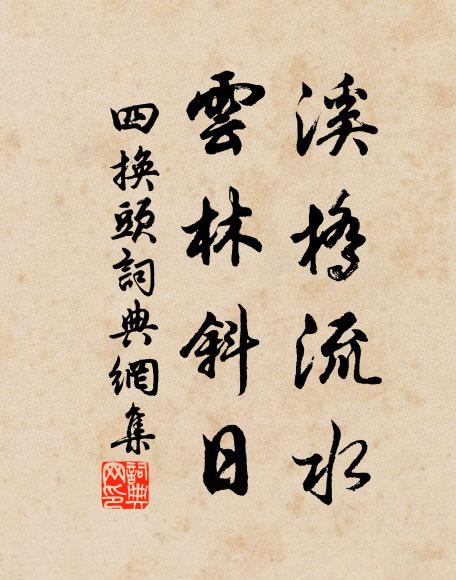 溪橋流水
雲林斜日
四換頭詞典網集
詞典网印